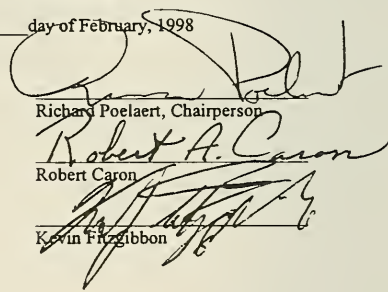 day of February, 1998
Richard Poelaert, Chairperson
Robert A. Caron
Robert Caron
Kevin Fitzgibbon